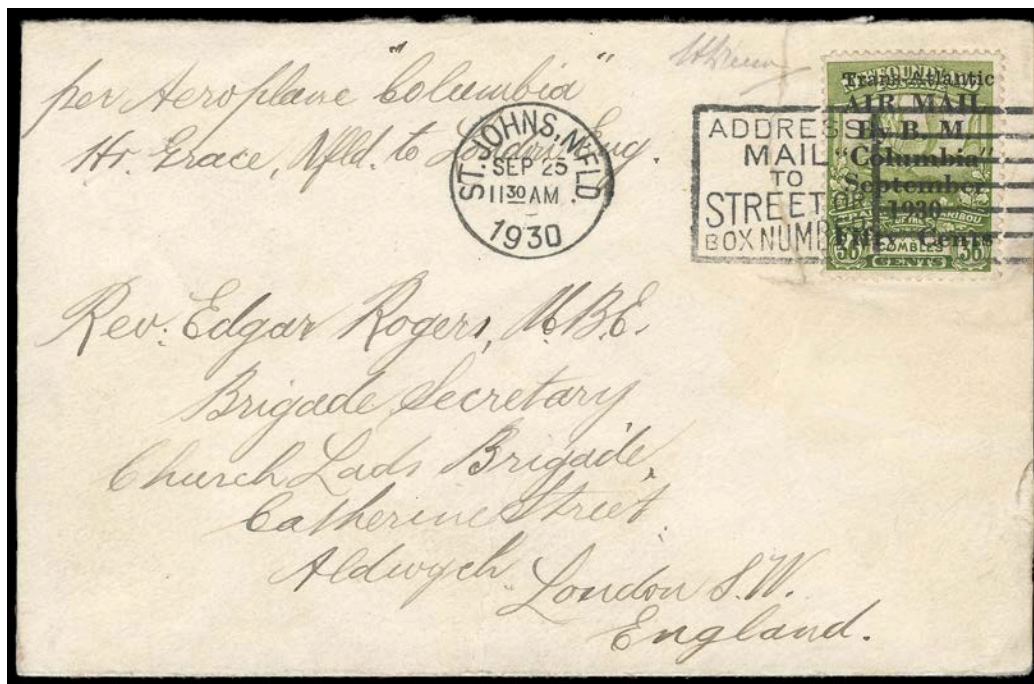 per Aeroplane "Columbia"
Hr. Grace, Nfld. to London Eng.
ST. JOHNS, NFLD.
SEP 25
11 30 AM
1930
ADDRESS
MAIL
TO
STREET OR
BOX NUMBER
Trans-Atlantic
AIR MAIL
By B. M.
"Columbia"
September
1930
Fifty Cents
36 COMBLES 36
CENTS
Rev. Edgar Rogers, M.B.E.
Brigade Secretary
Church Lads Brigade,
Catherine Street.
Aldwych
London S.W.
England.